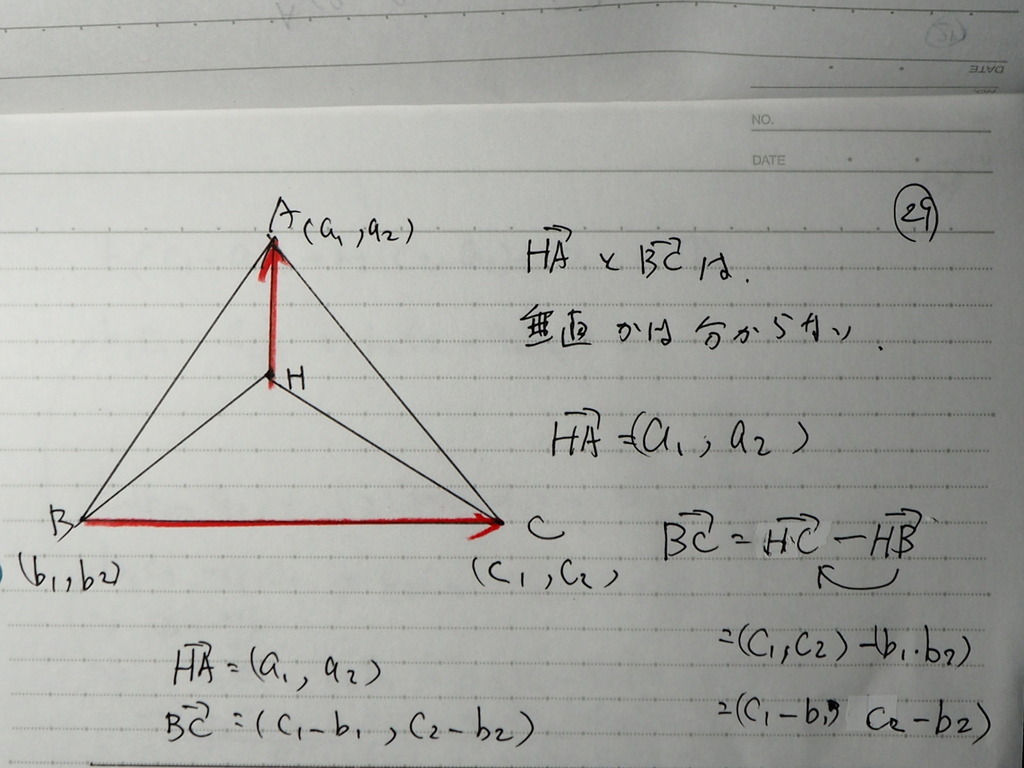 DATE
NO.
DATE
29
A(a₁, a₂)
H
B
(b₁, b₂)
C
(C₁, C₂)
HA と BC は、
垂直かは分からない。
HA = (a₁, a₂)
BC = HC - HB
= (C₁, C₂) - (b₁. b₂)
= (C₁ - b₁, C₂ - b₂)
HA = (a₁, a₂)
BC = (C₁ - b₁, C₂ - b₂)